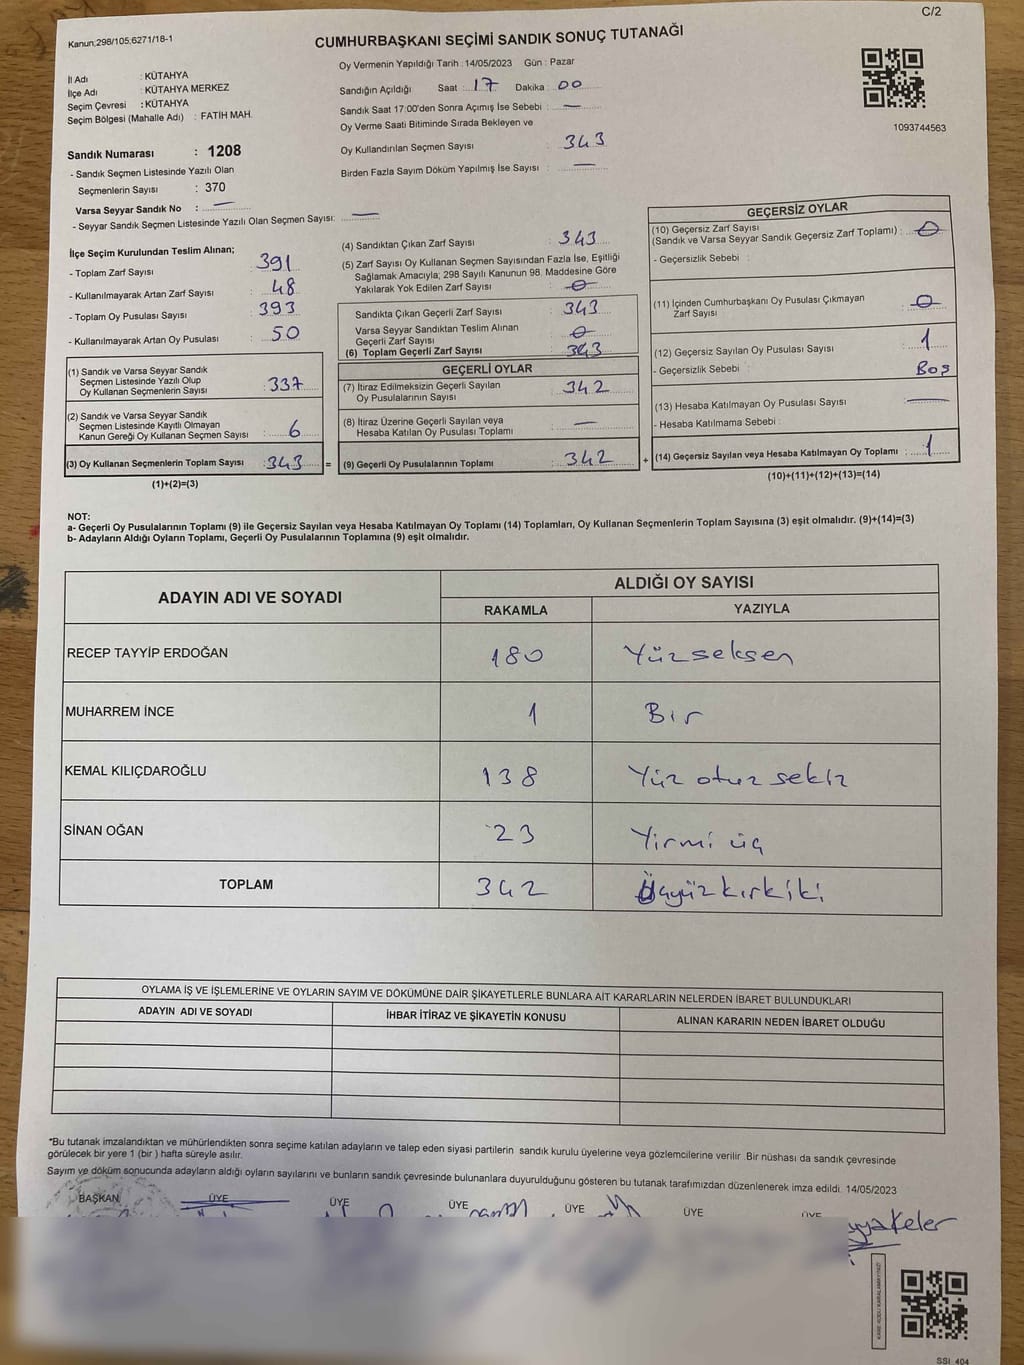 C/2
Kanun:298/105;6271/18-1
CUMHURBAŞKANI SEÇİMİ SANDIK SONUÇ TUTANAĞI
İl Adı : KÜTAHYA
İlçe Adı : KÜTAHYA MERKEZ
Seçim Çevresi : KÜTAHYA
Seçim Bölgesi (Mahalle Adı) : FATİH MAH.
Sandık Numarası : 1208
- Sandık Seçmen Listesinde Yazılı Olan
Seçmenlerin Sayısı : 370
Varsa Seyyar Sandık No : —
- Seyyar Sandık Seçmen Listesinde Yazılı Olan Seçmen Sayısı: —
Oy Vermenin Yapıldığı Tarih : 14/05/2023 Gün : Pazar
Sandığın Açıldığı Saat : 17 Dakika : 00
Sandık Saat 17:00'den Sonra Açımış İse Sebebi : —
Oy Verme Saati Bitiminde Sırada Bekleyen ve
Oy Kullandırılan Seçmen Sayısı : 343
Birden Fazla Sayım Döküm Yapılmış İse Sayısı : —
1093744563
İlçe Seçim Kurulundan Teslim Alınan;
- Toplam Zarf Sayısı : 391
- Kullanılmayarak Artan Zarf Sayısı : 48
- Toplam Oy Pusulası Sayısı : 393
- Kullanılmayarak Artan Oy Pusulası : 50
(1) Sandık ve Varsa Seyyar Sandık
Seçmen Listesinde Yazılı Olup
Oy Kullanan Seçmenlerin Sayısı : 337
(2) Sandık ve Varsa Seyyar Sandık
Seçmen Listesinde Kayıtlı Olmayan
Kanun Gereği Oy Kullanan Seçmen Sayısı : 6
(3) Oy Kullanan Seçmenlerin Toplam Sayısı : 343 =
(1)+(2)=(3)
(4) Sandıktan Çıkan Zarf Sayısı : 343
(5) Zarf Sayısı Oy Kullanan Seçmen Sayısından Fazla İse, Eşitliği
Sağlamak Amacıyla; 298 Sayılı Kanunun 98. Maddesine Göre
Yakılarak Yok Edilen Zarf Sayısı : 0
Sandıkta Çıkan Geçerli Zarf Sayısı : 343
Varsa Seyyar Sandıktan Teslim Alınan
Geçerli Zarf Sayısı : 0
(6) Toplam Geçerli Zarf Sayısı : 343
GEÇERLİ OYLAR
(7) İtiraz Edilmeksizin Geçerli Sayılan
Oy Pusulalarının Sayısı : 342
(8) İtiraz Üzerine Geçerli Sayılan veya
Hesaba Katılan Oy Pusulası Toplamı : —
(9) Geçerli Oy Pusulalarının Toplamı : 342 +
GEÇERSİZ OYLAR
(10) Geçersiz Zarf Sayısı
(Sandık ve Varsa Seyyar Sandık Geçersiz Zarf Toplamı) : 0
- Geçersizlik Sebebi :
(11) İçinden Cumhurbaşkanı Oy Pusulası Çıkmayan
Zarf Sayısı : 0
(12) Geçersiz Sayılan Oy Pusulası Sayısı : 1
- Geçersizlik Sebebi : Boş
(13) Hesaba Katılmayan Oy Pusulası Sayısı : —
- Hesaba Katılmama Sebebi :
(14) Geçersiz Sayılan veya Hesaba Katılmayan Oy Toplamı : 1
(10)+(11)+(12)+(13)=(14)
NOT:
a- Geçerli Oy Pusulalarının Toplamı (9) ile Geçersiz Sayılan veya Hesaba Katılmayan Oy Toplamı (14) Toplamları, Oy Kullanan Seçmenlerin Toplam Sayısına (3) eşit olmalıdır. (9)+(14)=(3)
b- Adayların Aldığı Oyların Toplamı, Geçerli Oy Pusulalarının Toplamına (9) eşit olmalıdır.
ADAYIN ADI VE SOYADI ALDIĞI OY SAYISI
RAKAMLA YAZIYLA
RECEP TAYYİP ERDOĞAN 180 Yüzseksen
MUHARREM İNCE 1 Bir
KEMAL KILIÇDAROĞLU 138 Yüz otuz sekiz
SİNAN OĞAN 23 Yirmi üç
TOPLAM 342 Üçyüz kırk iki
OYLAMA İŞ VE İŞLEMLERİNE VE OYLARIN SAYIM VE DÖKÜMÜNE DAİR ŞİKAYETLERLE BUNLARA AİT KARARLARIN NELERDEN İBARET BULUNDUKLARI
ADAYIN ADI VE SOYADI İHBAR İTİRAZ VE ŞİKAYETİN KONUSU ALINAN KARARIN NEDEN İBARET OLDUĞU
*Bu tutanak imzalandıktan ve mühürlendikten sonra seçime katılan adayların ve talep eden siyasi partilerin sandık kurulu üyelerine veya gözlemcilerine verilir .Bir nüshası da sandık çevresinde
görülecek bir yere 1 (bir ) hafta süreyle asılır.
Sayım ve döküm sonucunda adayların aldığı oyların sayılarını ve bunların sandık çevresinde bulunanlara duyurulduğunu gösteren bu tutanak tarafımızdan düzenlenerek imza edildi. 14/05/2023
BAŞKAN ÜYE ÜYE ÜYE ÜYE ÜYE ÜYE
SSI 404